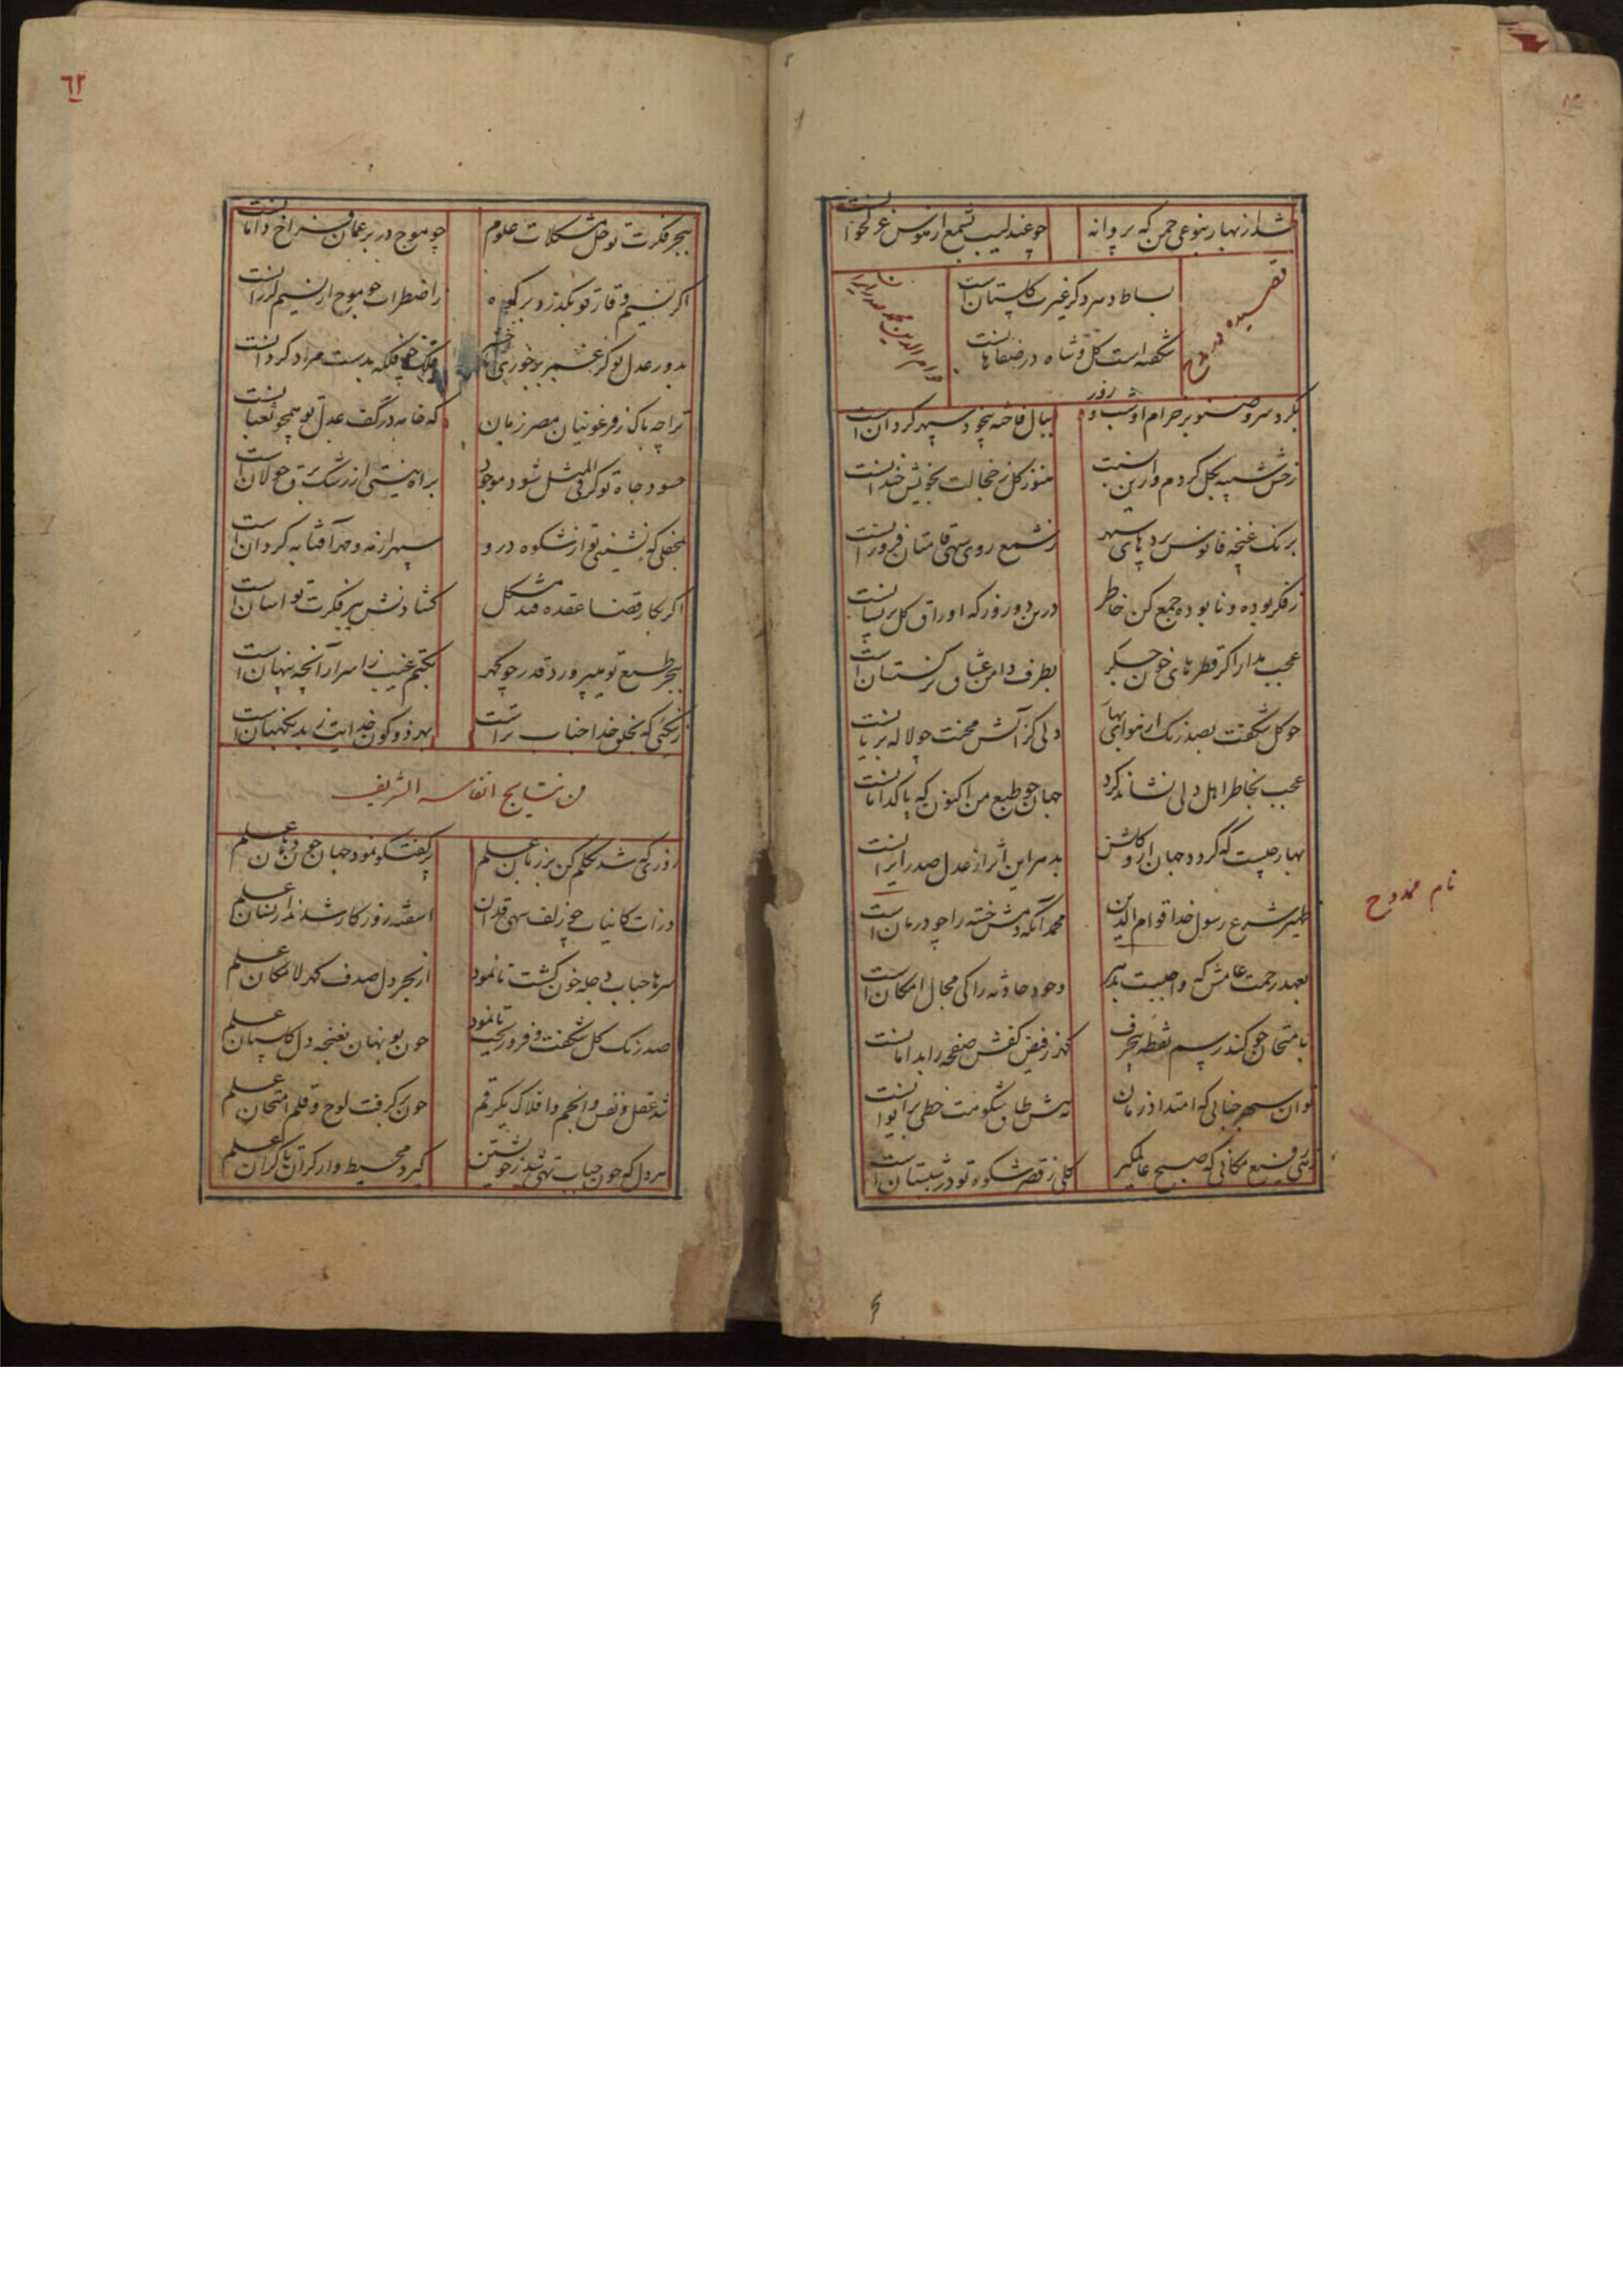 شد از بهار بنوعی چمن که پروانه
چو عندلیب بشمع از هوس غزلخوانست
قصیده در مدح
بساط دهر دگر غیرت گلستان است
شکفته است گل و شاه در صفاهانست
بگرد سرو صنوبر خرام او شب و روز
ببال فاخته بیخود سپهر گردان است
هنوز گل ز خجالت بخویش خندانست
برنک غنچه فانوس سپهر
ز شمع روی سهی قامتان فروزانست
ز فکر بوده و نابوده جمع کن خاطر
درین دو روز که اوراق گل پریشانست
عجب مدار اگر قطرهای خون جگر
بطرف دامن عشاق نرگستان است
چو گل شکفت بصد رنک از هوای بهار
دلی کز آتش محنت چو لاله بریانست
عجب بخاطر اهل دلی نشاند گرد
جهان چو طبع من اکنون که پاکدامانست
بهار چیست که گردد جهان ازو گلشن
بدهر این اثر از عدل صدر ایرانست
ظهیر شرع رسول خدا قوام الدین
محمد آنکه دمش خسته را چو درمان است
نام ممدوح
بعهد رحمت عامش که واجبست بدهر
وجود حادثه را کی مجال امکان است
بامتحان چو کند رسم نقطه
گهر ز فیض کفش صفحه را بدامانست
توان سپهر جنابی که امتداد زمان
به پیش طاق شکوهت خطی بر ایوانست
توئی رفیع مکانی که صبح عالمگیر
گلی ز قصر شکوه تو در شبستان است
٦٢
ببحر فکرت تو حل مشکلات علوم
چو موج در بر عمان فراخ دامانست
اگر نسیم وقار تو بگذرد بر کوه
ز اضطراب چو موج از نسیم لرزانست
بدور عدل تو گر غم برد خوری
فلک چو فلکه بدست مراد گردانست
ترا چه باک ز فرعونیان مصر زمان
که خامه در کف عدل تو همچو ثعبانست
حسود جاه تو گر فی المثل شود موجود
براه نیستی از رشک برق جولان است
بمحفلی که نشینی تو از شکوه درو
سپهر از مه و مهر آفتابه گردان است
اگر بکار قضا عقده فتد مشکل
گشادنش بر فکرت تو آسان است
ببحر طبع تو میپرورد قدر چو گهر
بکتم غیب ز اسرار آنچه پنهان است
ز نیکئی که بخلق خدا جناب تراست
بهر دو کون خدایت ز بد نگهبان است
من نتایج انفاسه الشریف
روزی که شد تکلم کن بر زبان علم
پر گفتگو نمود جهان چون دهان علم
ذرات کاینات چو زلف سهی قدان
آشفته روزگار شدند از نشان علم
سرها حباب دجله خون گشت تا نمود
از بحر دل صدف گهر لامکان علم
صد رنک گل شکفت و فرو ریخت تا نمود
چون بو نهان بغنچه دل گلستان علم
شد عقل و نفس و انجم و افلاک یکرقم
چون برگرفت لوح و قلم امتحان علم
هر دل که چون حباب تهی شد ز خویشتن
گیرد محیط وار کران تا کران علم